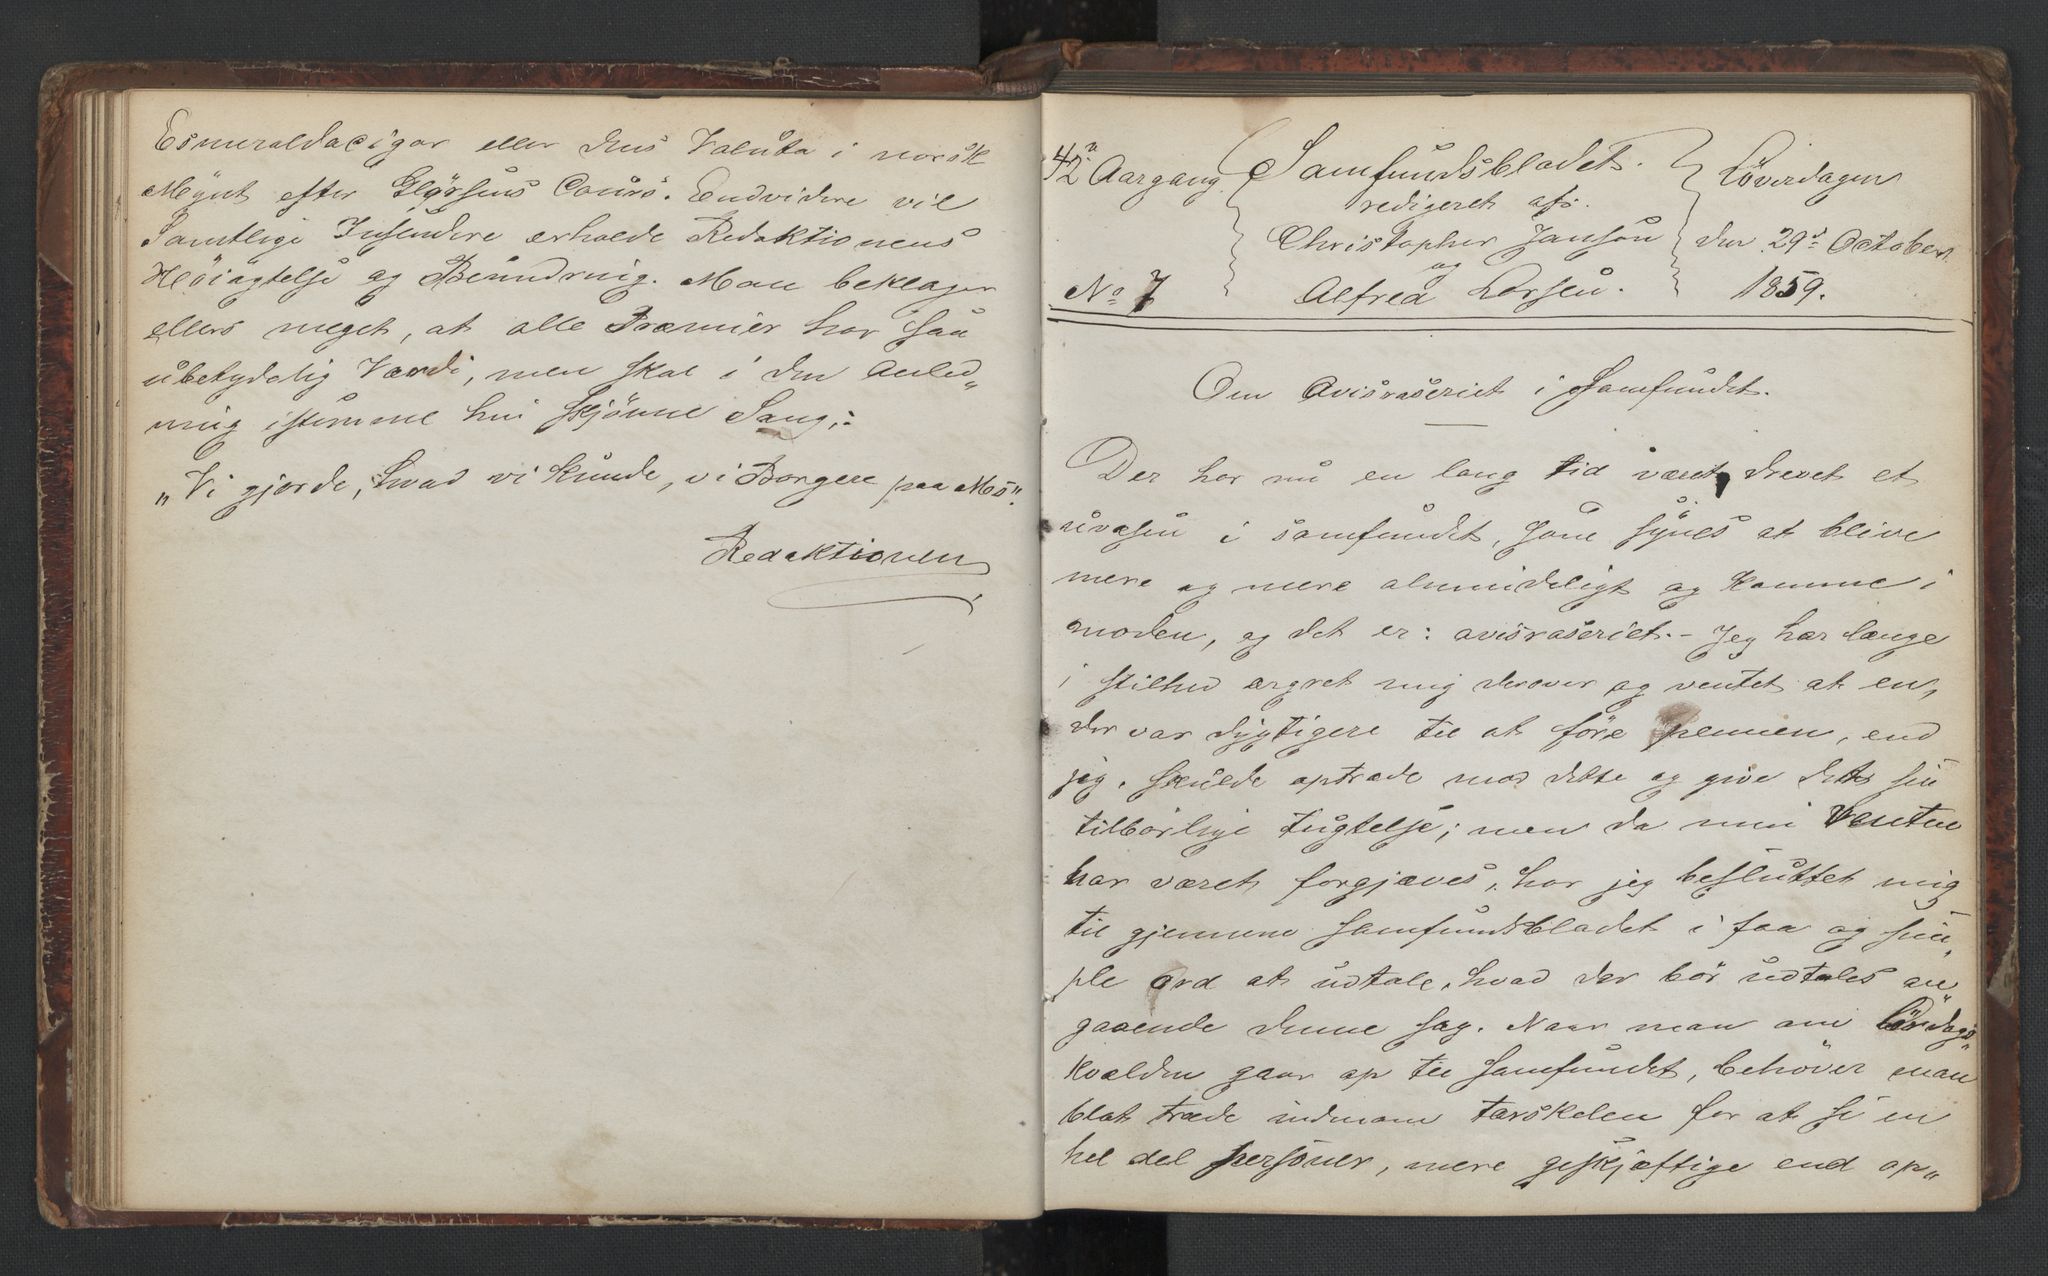 Esmeraldacigar eller dens Valuta i norsk
Mÿnt efter Glørsens Cours. Endvidere vil
Samtlige Insendere erholde Redaktionens
Høiagtelse og Beundring. Man beklager
ellers meget, at alle Præmier har saa
ubetydelig Værdi, men skal i den Anled„
ning istemme hin skjönne Sang,:
„Vi gjorde, hvad vi kunde, vi Borgere paa Mo“.
Redaktionen
42n Aargang.
No 7
Samfundsbladet.
redigeret af:
Christopher Janson
og
Alfred Larsen.
Löverdagen
den 29d October
1859.
Om Avisraseriet i Samfundet.
Der har nu en lang tid været drevet et
uvæsen i samfundet, som synes at blive
mere og mere almindeligt og komme i
moden, og det er: avisraseriet. - Jeg har længe
i stilhed ærgret mig derover og ventet at en,
der var dygtigere til at före pennen, end
jeg, skulde optræde mod dette og give det sin
tilbørlige tugtelse; men da min Venten
har været forgjæves, har jeg besluttet mig
til gjennem samfundsbladet i faa og sim„
ple ord at udtale, hvad der bör udtales an„
gaaende denne sag. Naar man om Lördags„
kvælden gaar op til samfundet, behöver man
blot træde indenom tærskelen for at se en
hel del personer, mere geskjæftige end op„